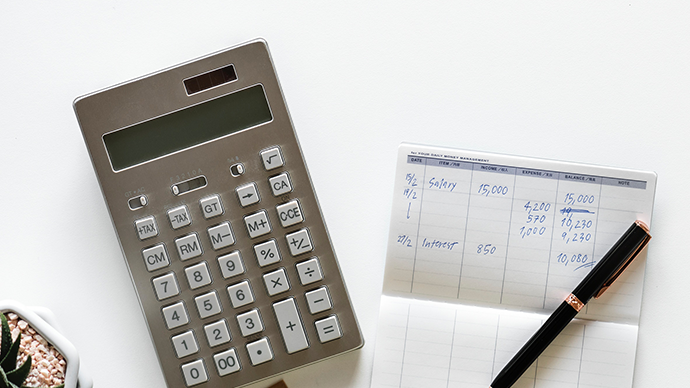 √
→ CA
+TAX -TAX GT M+ C·CE
CM RM M- % +/-
7 8 9 × ÷
4 5 6 + −
1 2 3 =
0 00 •
YOUR DAILY MONEY MANAGEMENT
DATE ITEM INCOME EXPENSE BALANCE NOTE
15/2 Salary 15,000 15,000
19/2 4,200
↓ 570 10,230
1,000 9,230
27/2 Interest 850 10,080